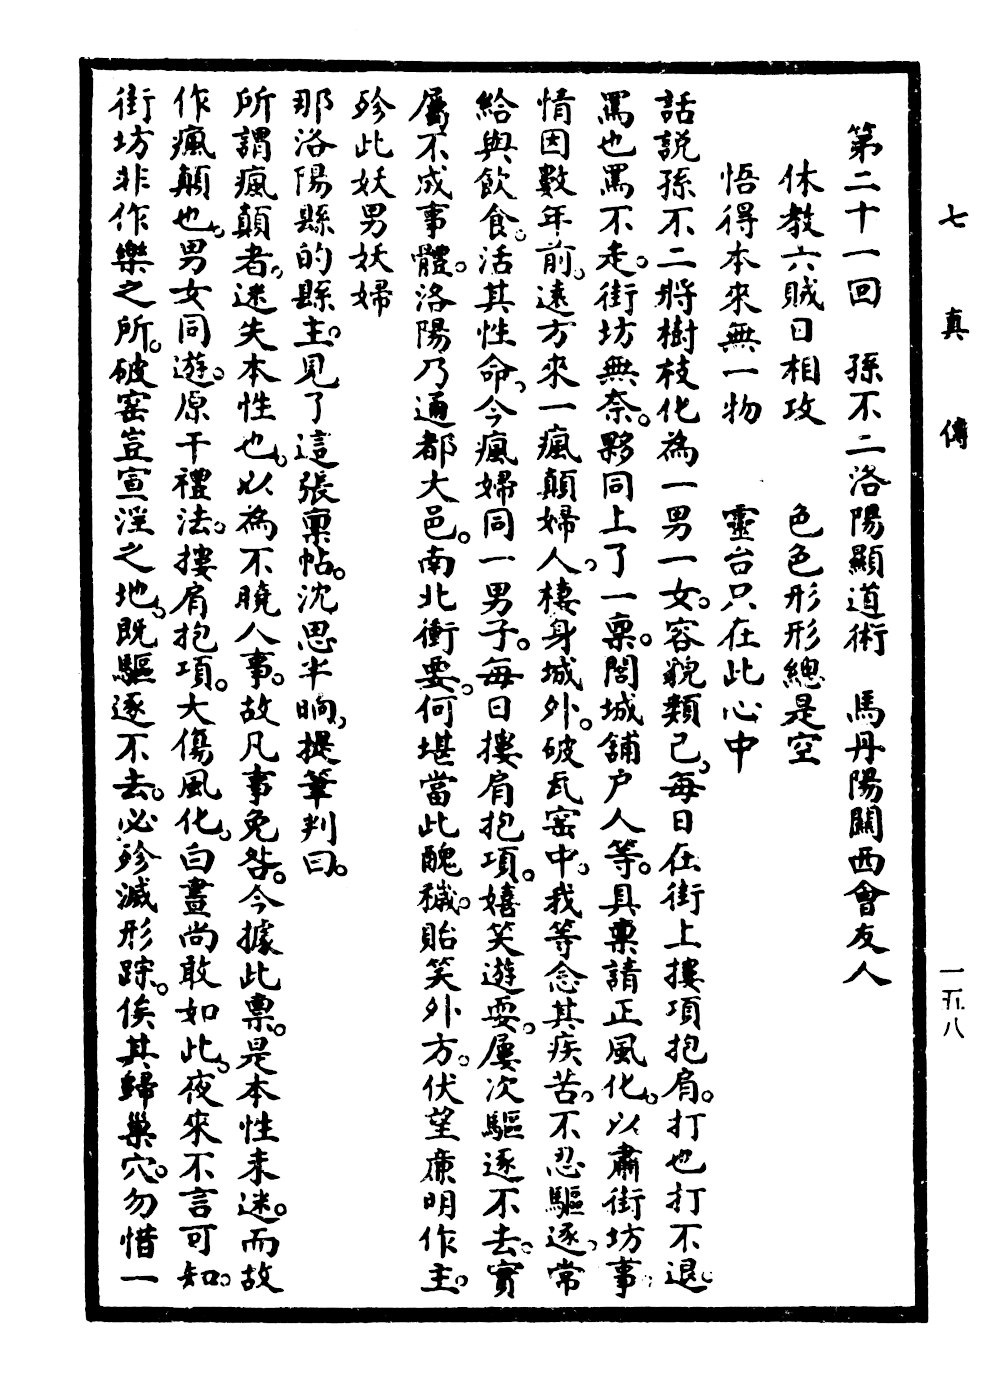 七真傳
一五八
第二十一回　孫不二洛陽顯道術　馬丹陽關西會友人
休教六賊日相攻　色色形形總是空
悟得本來無一物　靈台只在此心中
話說孫不二將樹枝化為一男一女。容貌類己。每日在街上摟項抱肩。打也打不退。
罵也罵不走。街坊無奈。夥同上了一稟。閤城鋪户人等。具稟請正風化。以肅街坊事。
情因數年前。遠方來一瘋顛婦人。棲身城外。破瓦窑中。我等念其疾苦。不忍驅逐。常
給與飲食。活其性命。今瘋婦同一男子。每日摟肩抱項。嬉笑遊耍。屢次驅逐不去。實
屬不成事體。洛陽乃通都大邑。南北衝要。何堪當此醜穢。貽笑外方。伏望廉明作主。
殄此妖男妖婦
那洛陽縣的縣主。見了這張稟帖。沈思半晌。提筆判曰。
所謂瘋顛者。迷失本性也。以為不曉人事。故凡事免咎。今據此稟。是本性未迷。而故
作瘋顛也。男女同遊。原干禮法。摟肩抱項。大傷風化。白晝尚敢如此。夜來不言可知。
街坊非作樂之所。破窑豈宣淫之地。既驅逐不去。必殄滅形踪。俟其歸巢穴。勿惜一